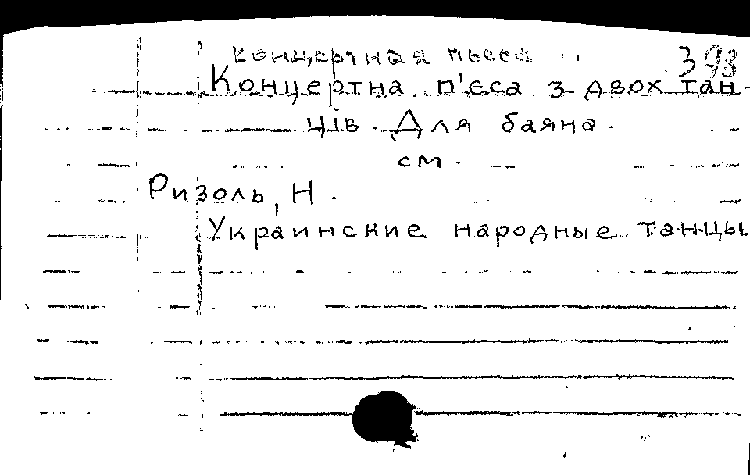 концертная пьеса
393
Концертна п'єса з двох тан
ців. Для баяна.
см.
Ризоль, Н.
Украинские народные танцы